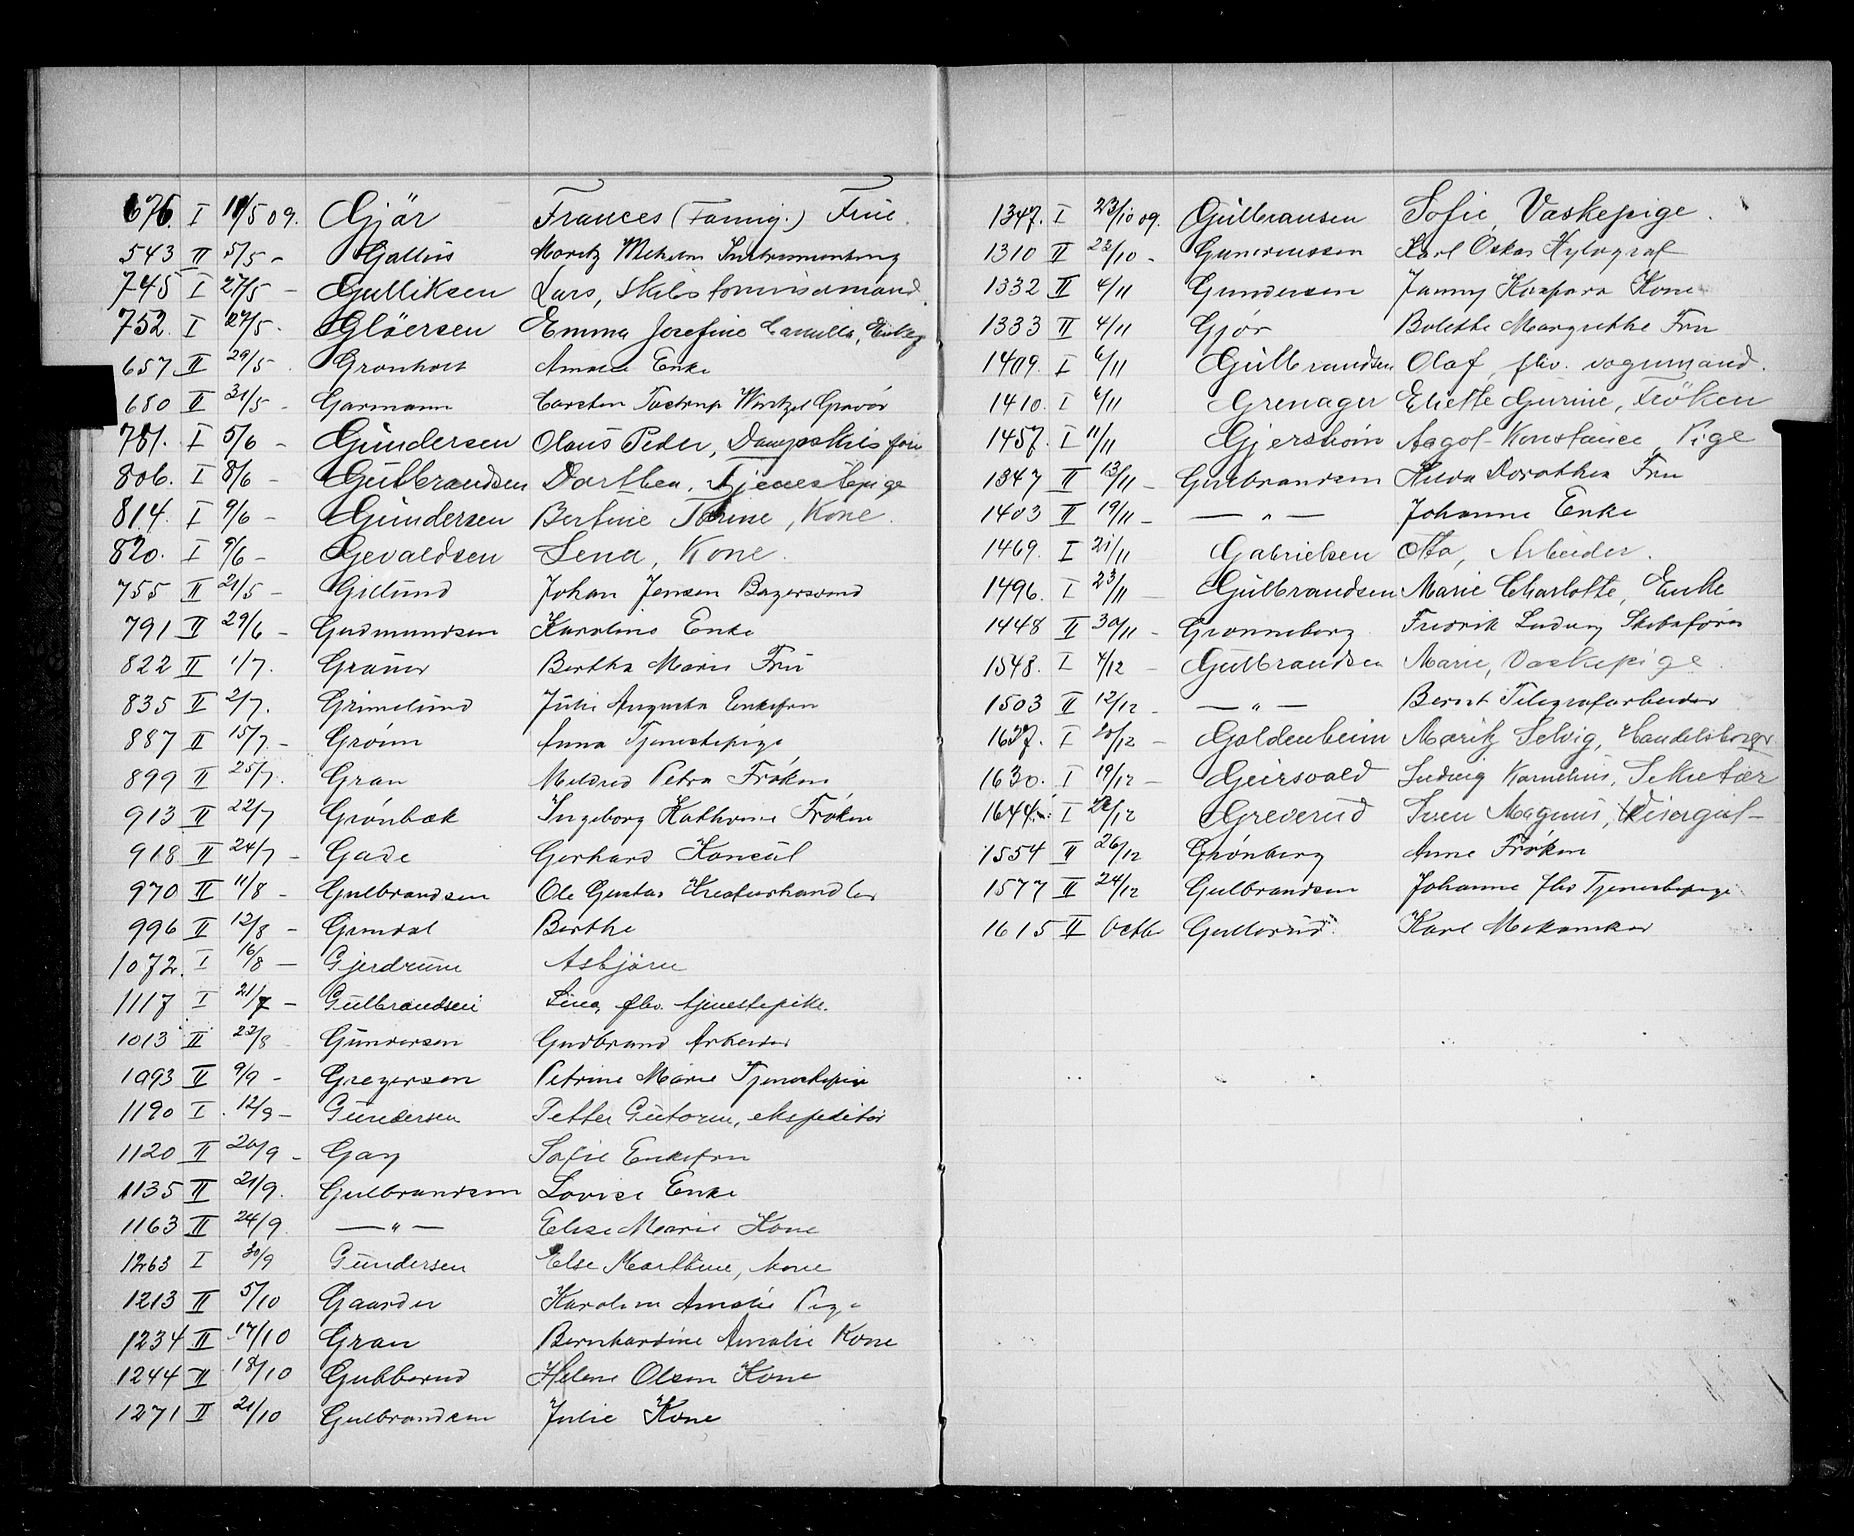 676. I 11/5 09. Gjör Frances (Fannig.) Frue.
543 II 5/5 - Gallus Moritz Wilhelm
745 I 27/5 - Gulliksen Lars,
752. I 27/5. Gløersen Emma Josefine Camilla,
657 II 29/5 Grønholt Enke
680 II 31/5 - Garmann Carsten Tostrup Wintzel Gravör
781. I 5/6 - Gundersen Olaus Peder,
806. I 8/6 - Gulbrandsen Dorthea, Tjenestepige
814. I 9/6 - Gundersen Bertine Torine, Kone.
820. I 9/6 - Gevaldsen Lena, Kone.
755 II 21/5 - Gillund Johan Jensen
791 II 29/6 - Gudmundsen Karoline Enke
822 II 1/7. Grauer Bertha Marie Fru
835 II 2/7. Grimelund Julie Augusta Enkefru
887 II 15/7. - Grönn Anna Tjenestepige
899 II 25/7. Gran Mildred Petra Frøken
913 II 22/7 Grönbæk Ingeborg Kathrine Frøken
918 II 24/7 - Gade Gerhard Konsul
970 II 11/8 - Gulbrandsen Ole Gustav Kreaturhandler
996 II 12/8 - Grindal Berthe
1072. I 16/8 - Gjerdrum Asbjörn
1117 I 21/7 - Gulbrandsen Lina, fhv. tjenestepike.
1013 II 23/8 Gundersen Gudbrand Arbeider
1093 II 9/9 - Gregersen Petrine Marie Tjenestepige
1190 I 12/9 - Gundersen Petter Gutorm, ekspeditör
1120 II 20/9 - Gay Sofie Enkefru
1135 II 21/9. Gulbrandsen Lovise Enke
1163 II 24/9 — " — Elise Marie Kone
1263 I 30/9 Gundersen Else Marthine, kone
1213 II 5/10 Gaarder Karoline Amalie Pige
1234 II 17/10 Gran Bernhardine Amalie Kone
1244 II 18/10 Gubberud Helene Olsen Kone
1271 II 21/10 Gulbrandsen Julie Kone
1347. I 23/10 09. Gulbransen Sofie, Vaskepige.
1310 II 23/10 - Gundersen Karl Oskar Xylograf
1332 II 4/11 Gundersen Jenny Kaspara Kone
1333 II 4/11 Gjør Bolette Margrethe Fru
1409. I 6/11 Gulbrandsen Olaf, fhv. vognmand.
1410. I 6/11 Grenager Eliette Gurine, Fröken
1457. I 11/11 Aagot Konstance Pige
1347 II 13/11 - Gulbrandsen Hilda Dorothea Fru
1403 II 19/11 - — " — Johanne Enke
1469. I 21/11 Gabrielsen Otto, Arbeider.
1496. I 23/11 - Gulbrandsen Marie Charlotte, Enke
1448 II 30/11 - Grønneberg Fredrik Ludvig Skibsfører
1548. I 4/12 - Gulbrandsen Marie, Vaskepige.
1503 II 12/12 - — " — Bernt Telegrafarbeider
1627. I 20/12 - Goldenheim Moritz Selvig, Handelsborger
1630. I 19/12 - Geirsvold Ludvig Kornelius, Sekretær
1644. I 22/12 Greverud Iver Magnus,
1554 II 26/12 Grønberg Anne Frøken
1577 II 24/12 Gulbrandsen Johanne fhv Tjenestepige
1615 II Octb Gullerud. Karl Mekaniker